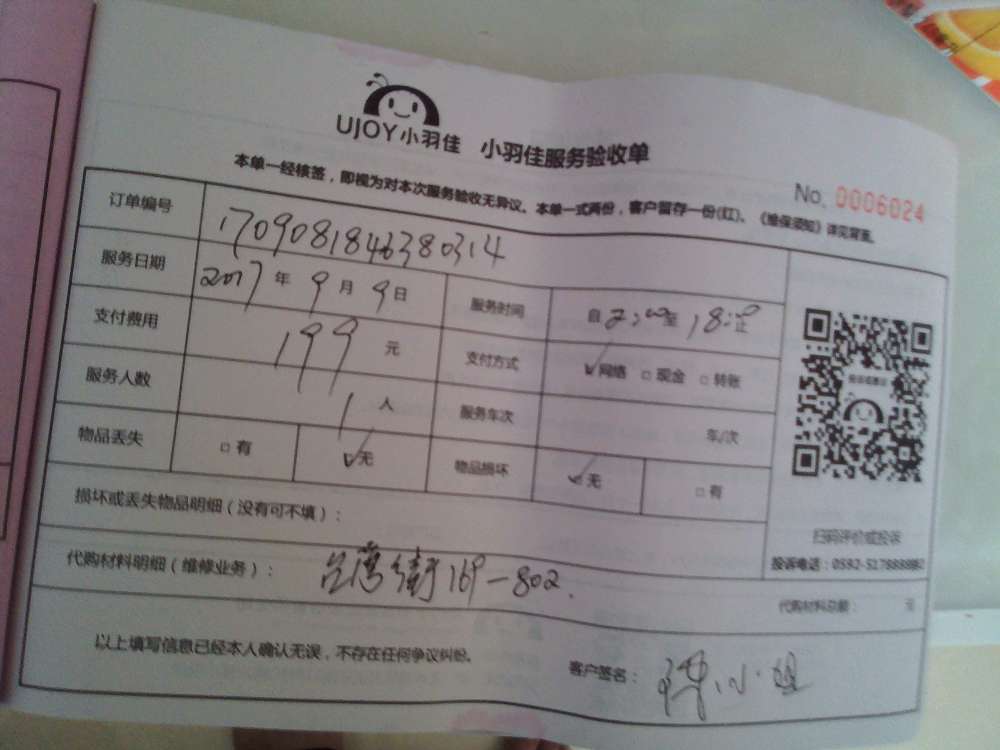 UJOY小羽佳 小羽佳服务验收单
No. 0006024
本单一经核签，即视为对本次服务验收无异议。本单一式两份，客户留存一份(红)。《维保须知》详见背面。
订单编号 17090818463803​14
服务日期 2017年9月9日 服务时间 自2:00至18:00止
支付费用 199元 支付方式 ✓网络 □现金 □转账
服务人数 1人 服务车次 车/次
物品丢失 □有 ☑无 物品损坏 ☑无 □有
损坏或丢失物品明细（没有可不填）：
扫码评价或投诉
投诉电话：0592-5178888
代购材料明细（维修业务）： 台湾街169-802.
代购材料总额： 元
以上填写信息已经本人确认无误，不存在任何争议纠纷。
客户签名： 小姐